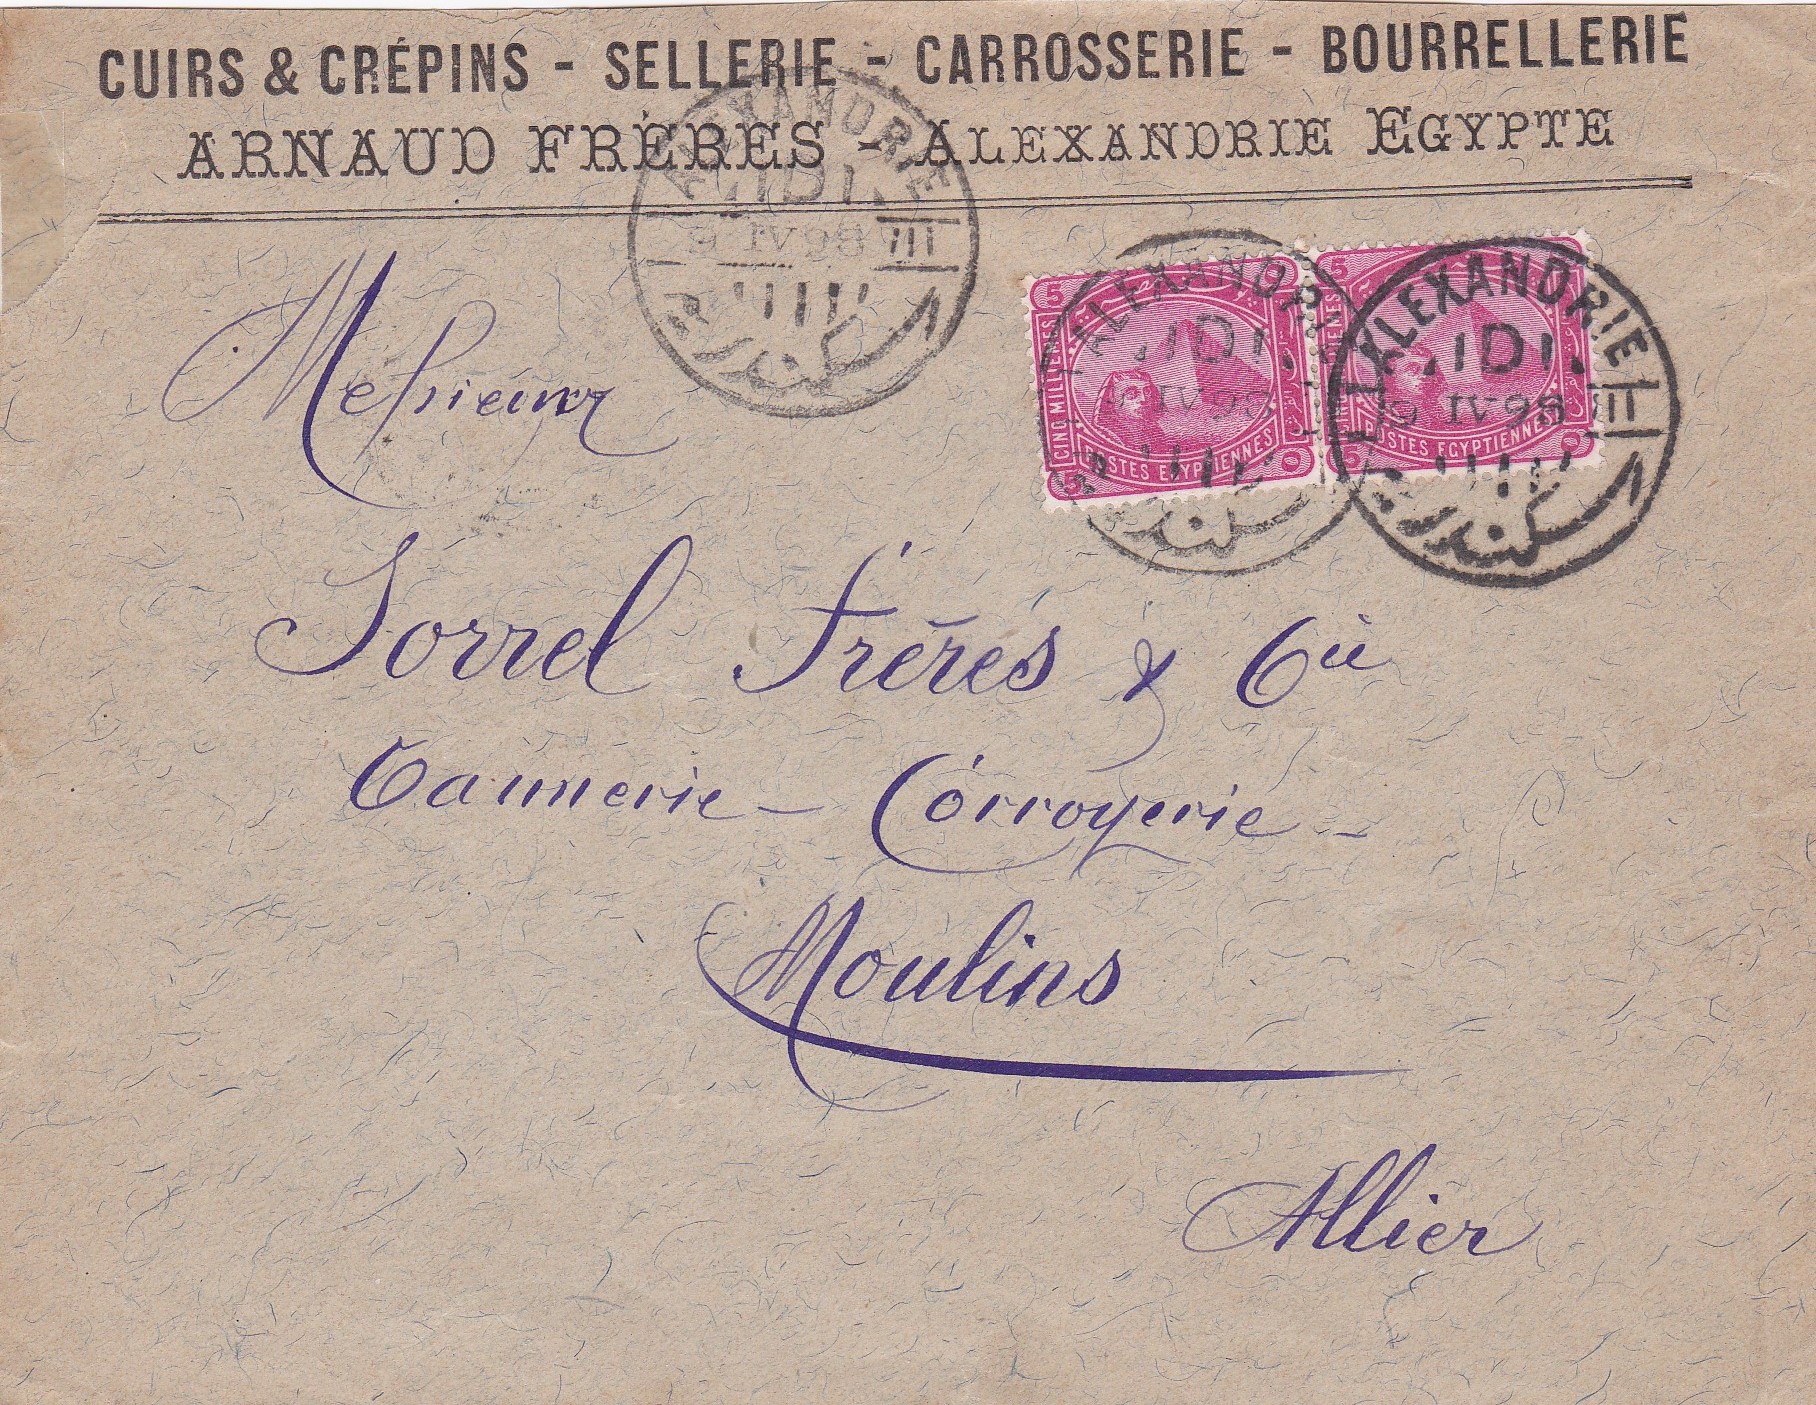 CUIRS & CRÉPINS - SELLERIE - CARROSSERIE - BOURRELLERIE
ARNAUD FRÈRES - ALEXANDRIE EGYPTE
ALEXANDRIE
9 IV 98 III
ALEXANDRIE
IV 98
ALEXANDRIE
9 IV 98 III
5 5
CINQ MILLIÈMES
POSTES EGYPTIENNES
5 5
POSTES EGYPTIENNES
Messieurs
Sorrel Frères & Cie
Tannerie - Corroyerie -
Moulins
Allier